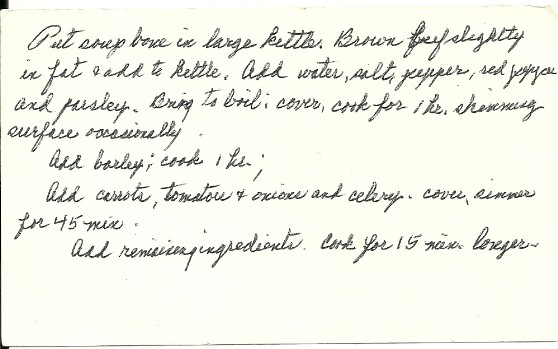 Put soup bone in large kettle. Brown beef slightly
in fat & add to kettle. Add water, salt, pepper, red pepper
and parsley. Bring to boil; cover, cook for 1 hr. skimming
surface occasionally.
Add barley; cook 1 hr.;
Add carrots, tomatoes & onions and celery. cover, simmer
for 45 min.
Add remaining ingredients. Cook for 15 min. longer.